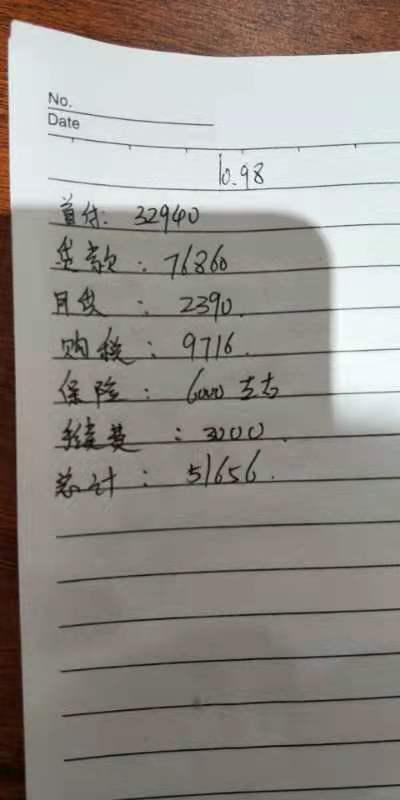 No.
Date
10.98
首付: 32940
贷款: 76860
月供: 2390.
购税: 9716.
保险: 6000 左右
手续费: 3000.
总计: 51656.